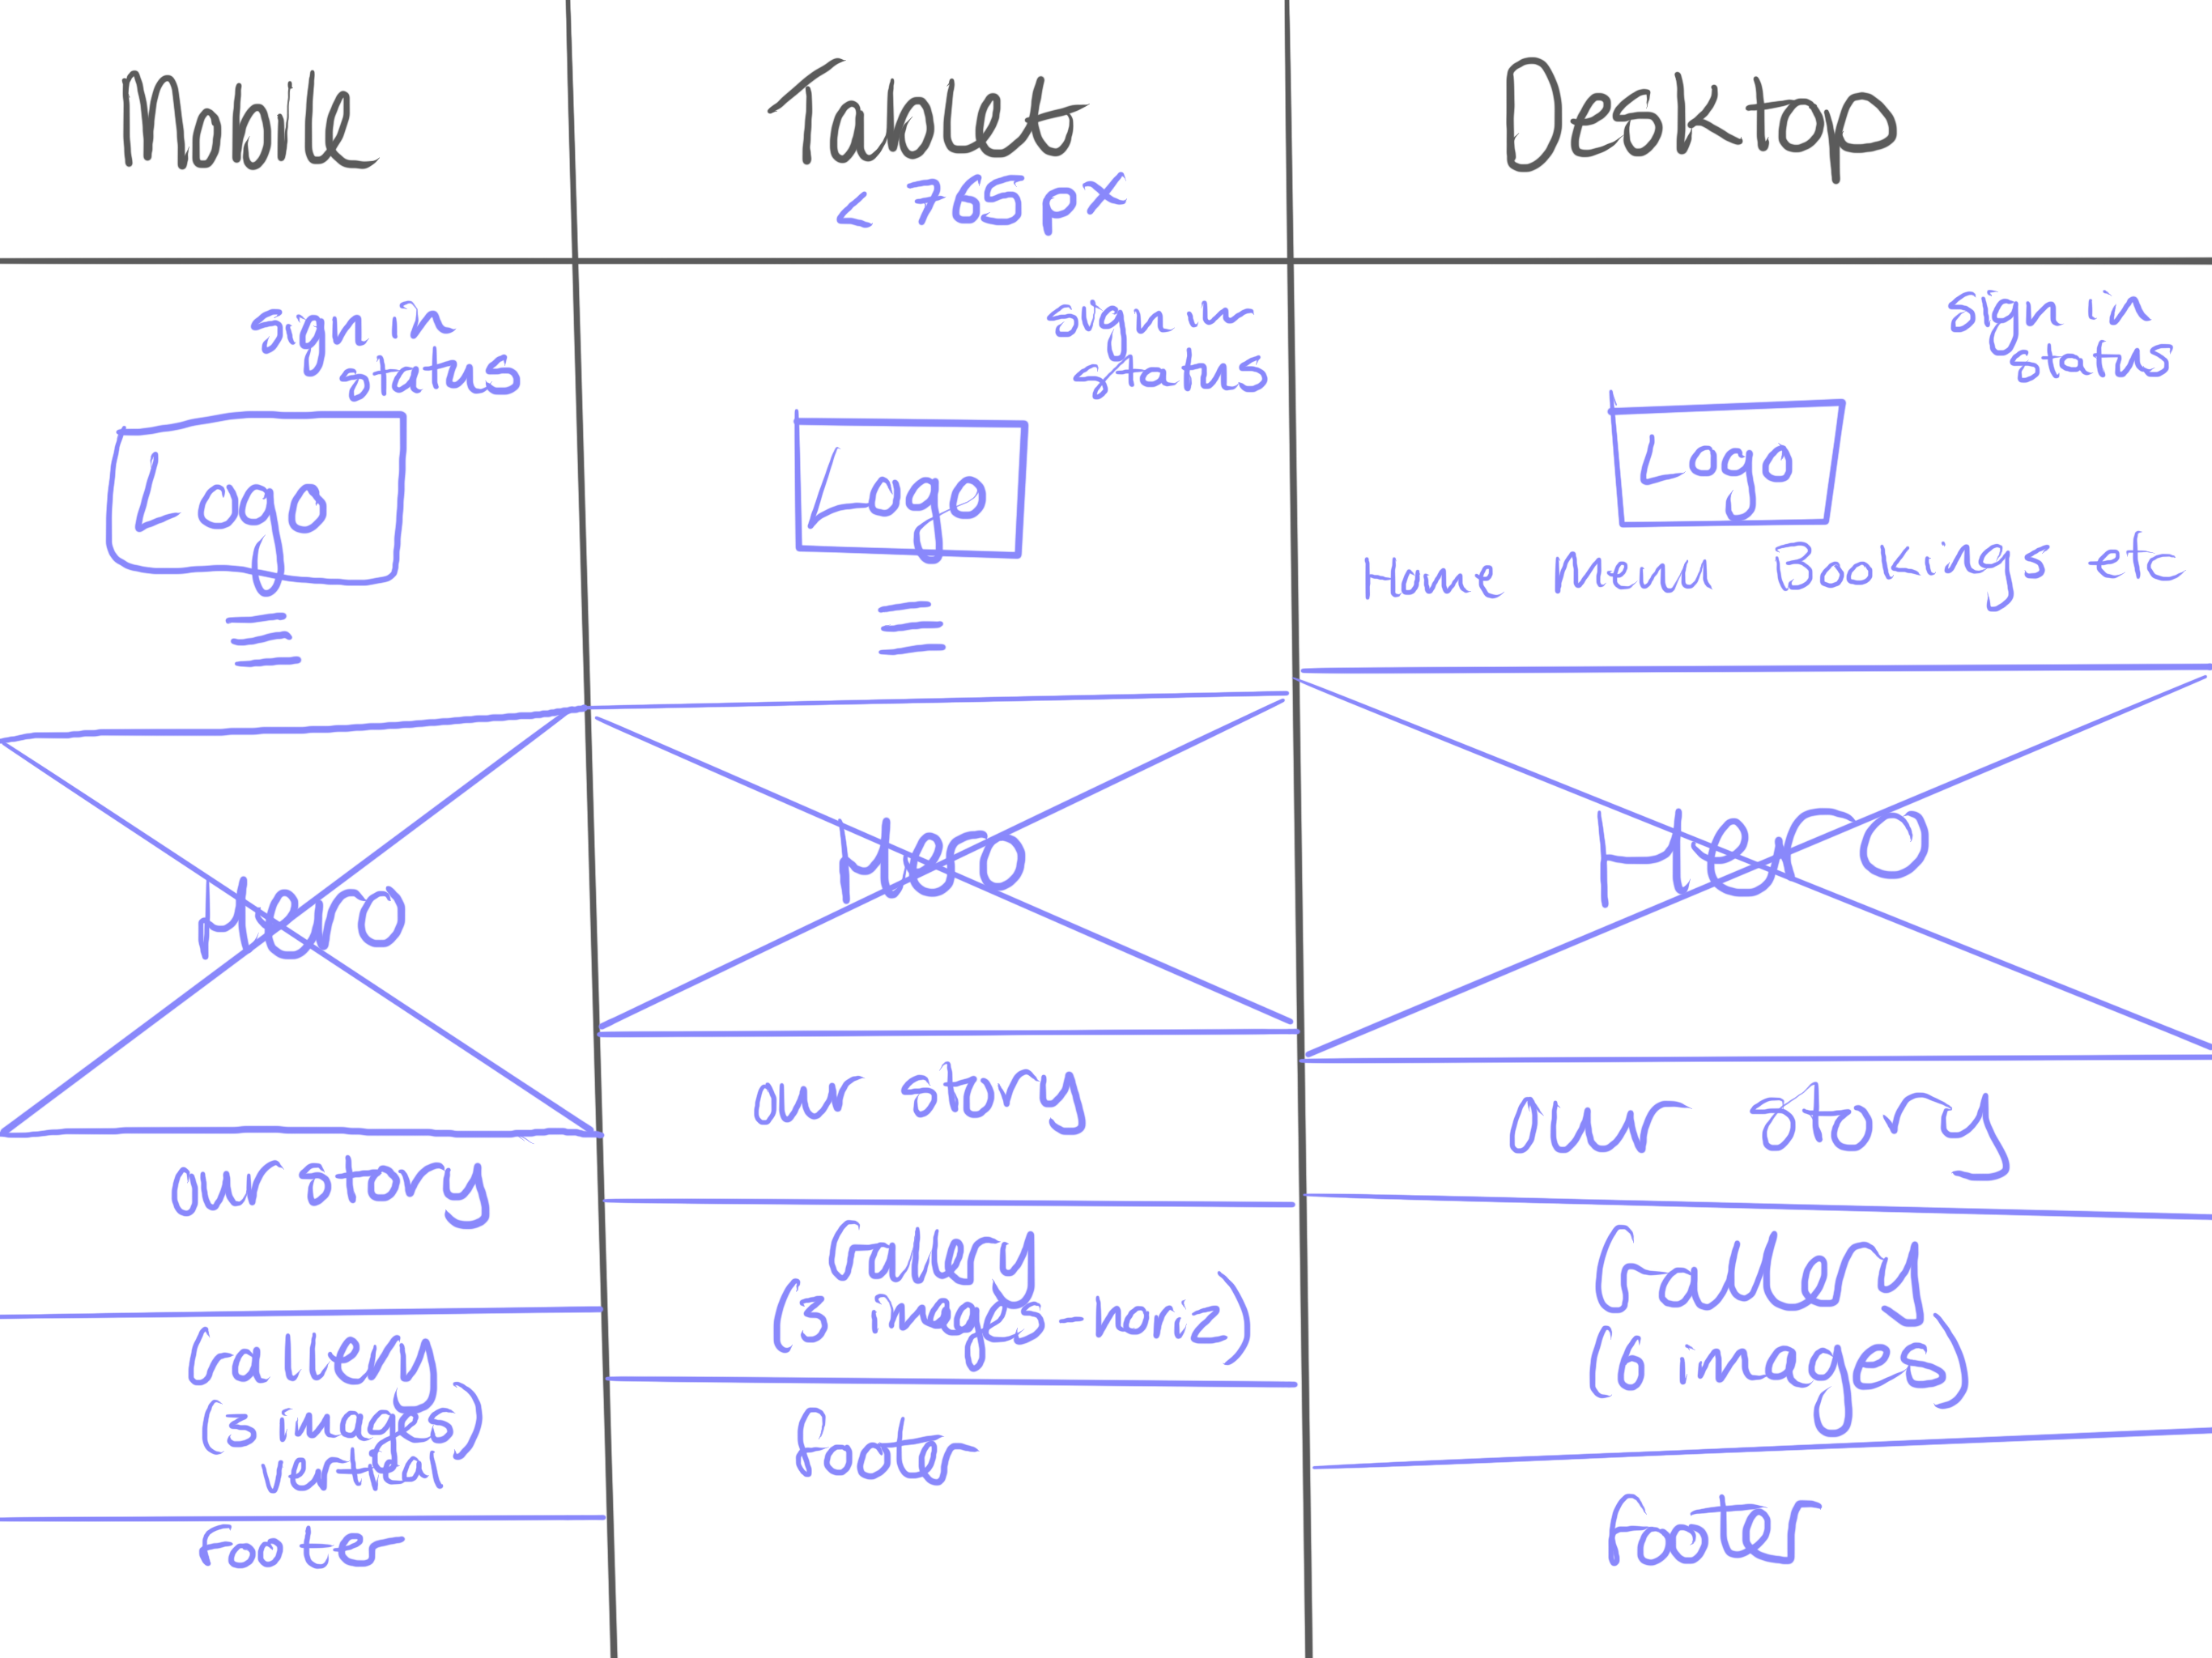 Mobile
Tablet
< 765px
Desktop
sign in
status
Logo
Hero
our story
Gallery
(3 images)
vertical
footer
sign in
status
Logo
Hero
our story
Gallery
(3 images-horiz)
footer
sign in
status
Logo
Home Menu Bookings etc
Hero
our story
Gallery
(6 images)
Footer